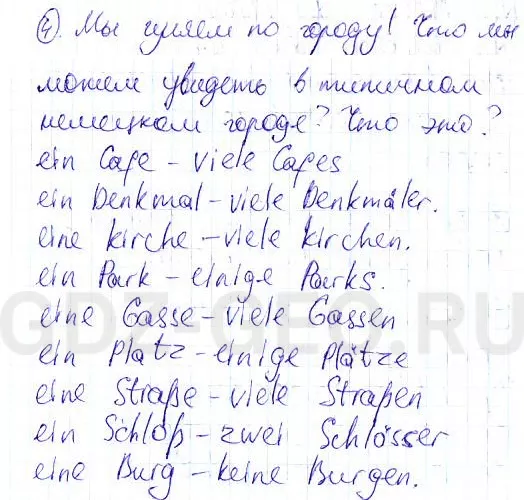 4) Мы гуляем по городу! Что мы
можем увидеть в типичном
немецком городе? Что это?
ein Cafe – viele Cafes
ein Denkmal – viele Denkmäler.
eine Kirche – viele Kirchen.
ein Park – einige Parks.
eine Gasse – viele Gassen
GDZ-GEO.RU
ein Platz – einige Plätze
eine Straße – viele Straßen
ein Schloß – zwei Schlösser
eine Burg – keine Burgen.